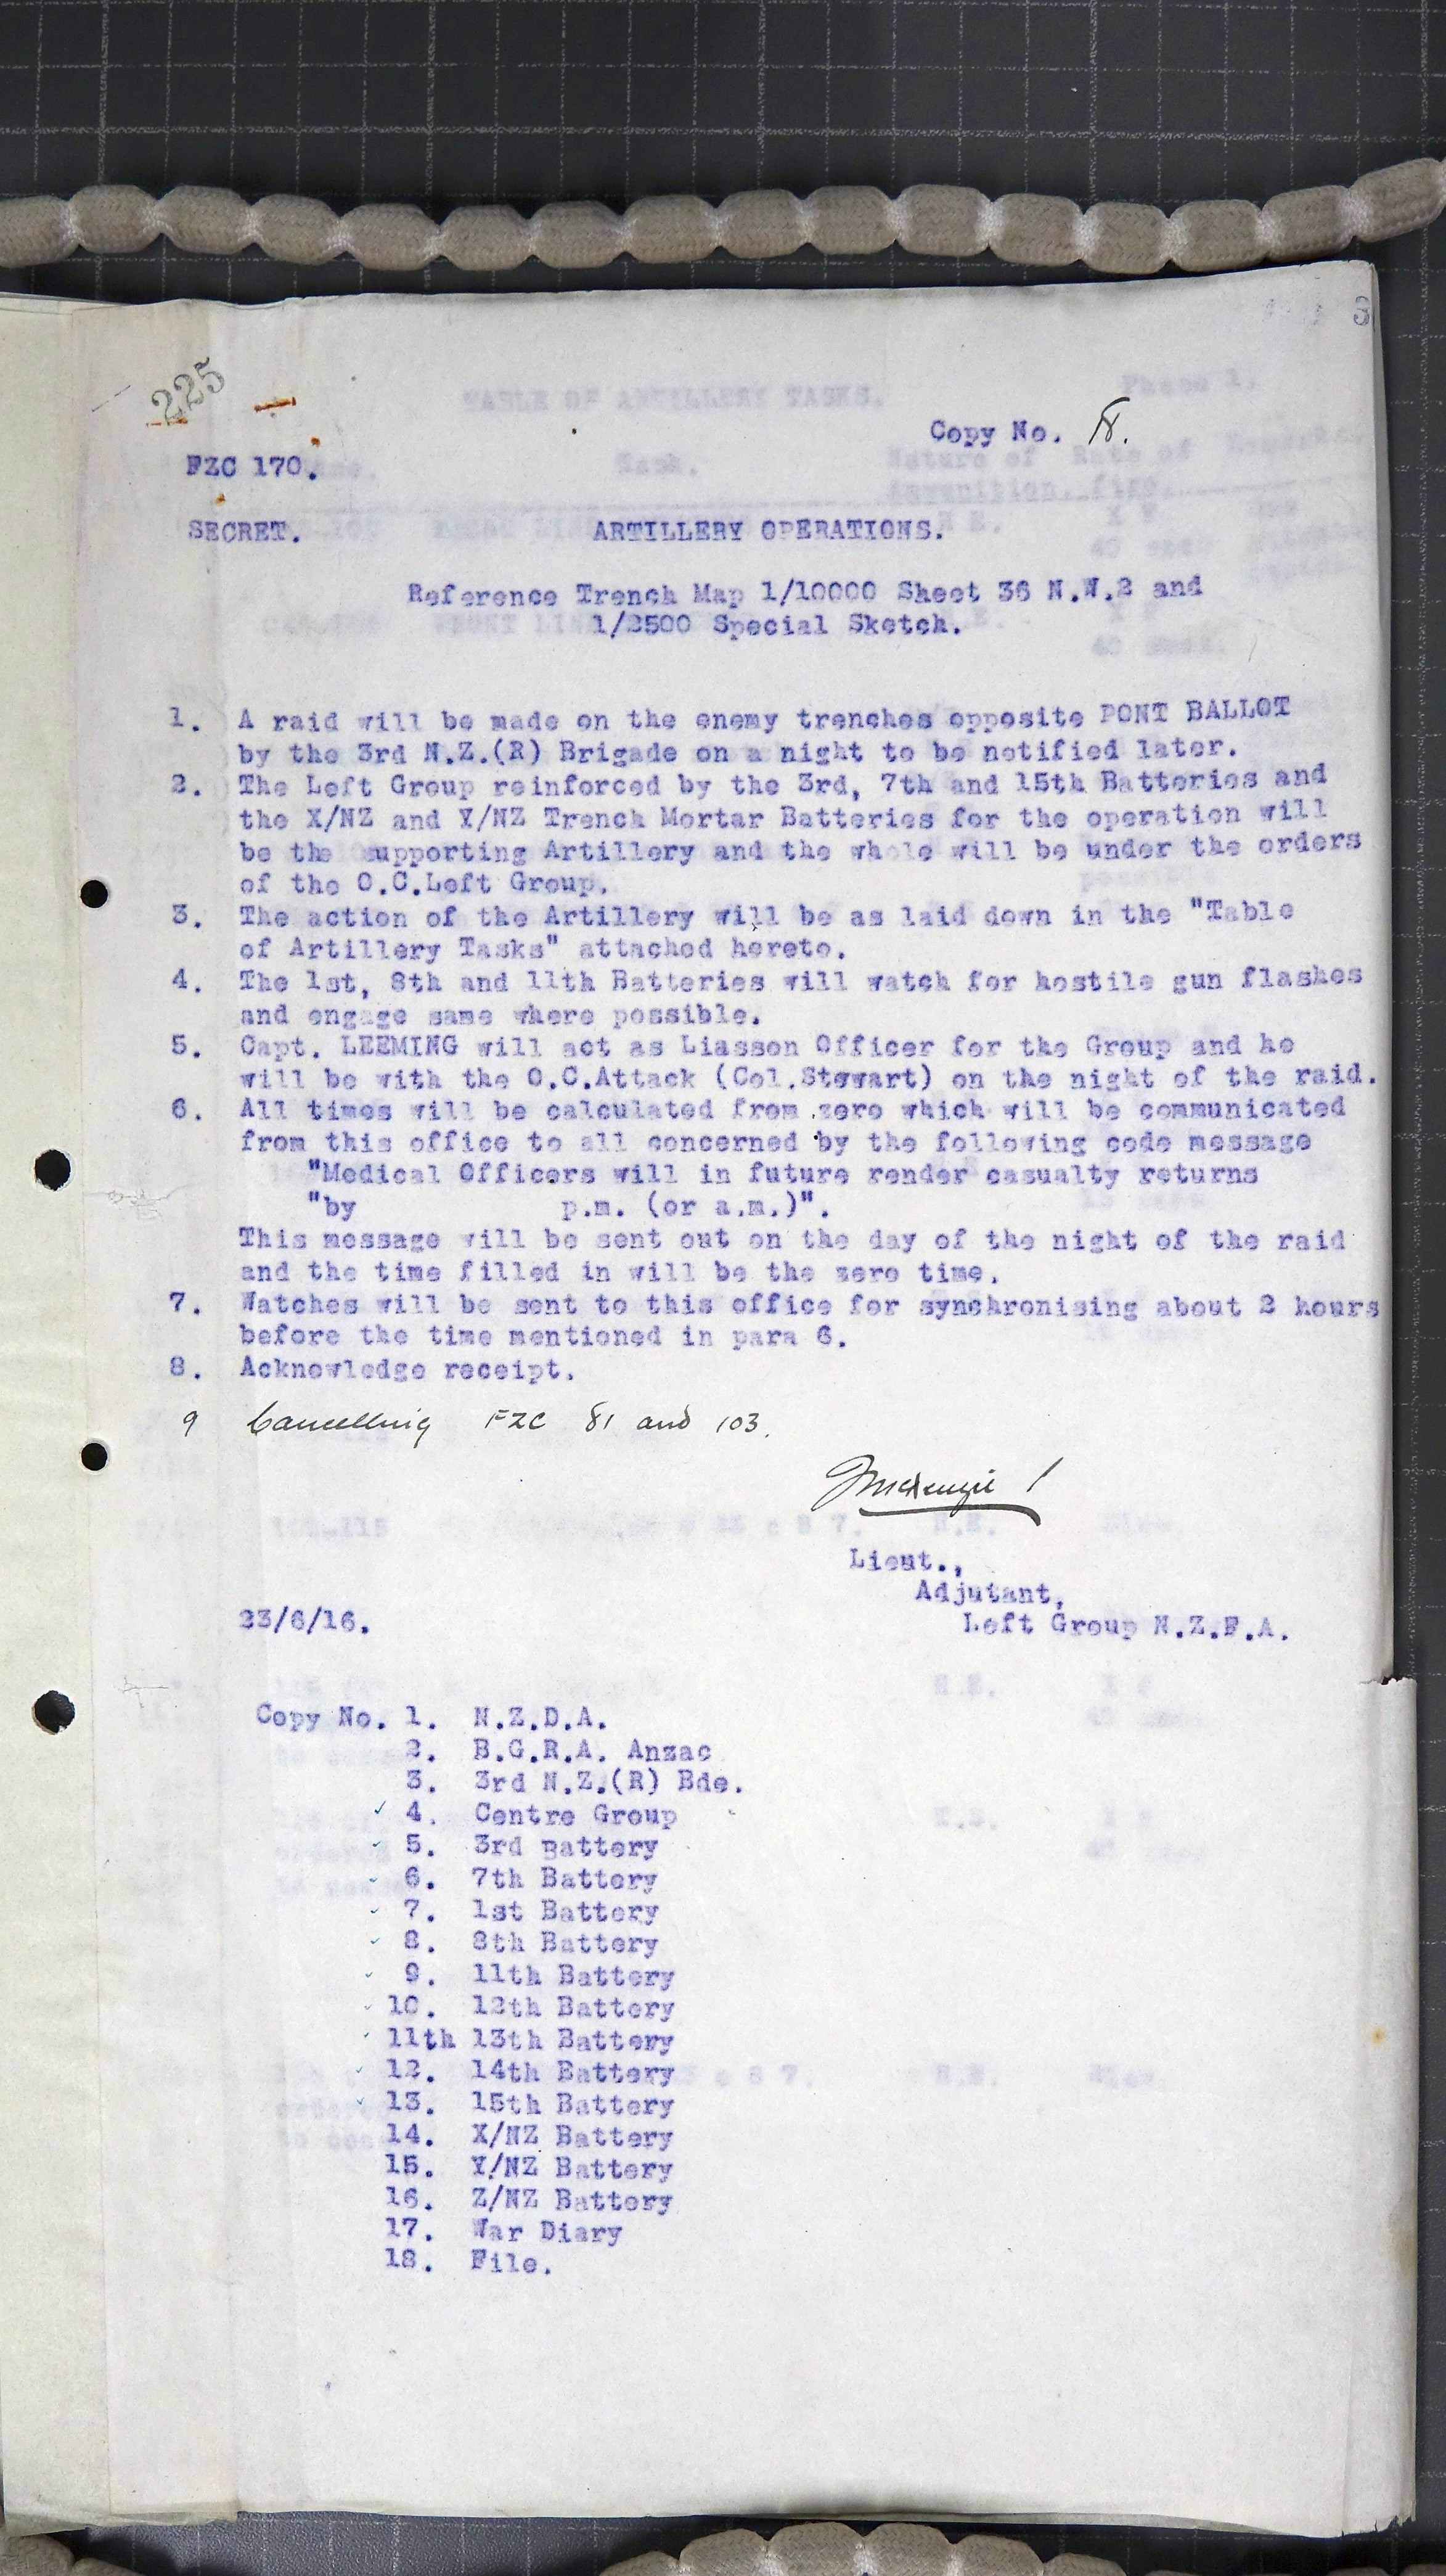 225
Copy No. 18.
FZC 170.
SECRET. ARTILLERY OPERATIONS.
Reference Trench Map 1/10000 Sheet 36 N.W.2 and
1/2500 Special Sketch.
1. A raid will be made on the enemy trenches opposite PONT BALLOT
by the 3rd N.Z.(R) Brigade on a night to be notified later.
2. The Left Group reinforced by the 3rd, 7th and 15th Batteries and
the X/NZ and Y/NZ Trench Mortar Batteries for the operation will
be the supporting Artillery and the whole will be under the orders
of the O.C.Left Group.
3. The action of the Artillery will be as laid down in the "Table
of Artillery Tasks" attached hereto.
4. The 1st, 8th and 11th Batteries will watch for hostile gun flashes
and engage same where possible.
5. Capt. LEEMING will act as Liasson Officer for the Group and he
will be with the O.C.Attack (Col.Stewart) on the night of the raid.
6. All times will be calculated from zero which will be communicated
from this office to all concerned by the following code message
"Medical Officers will in future render casualty returns
"by p.m. (or a.m.)".
This message will be sent out on the day of the night of the raid
and the time filled in will be the zero time.
7. Watches will be sent to this office for synchronising about 2 hours
before the time mentioned in para 6.
8. Acknowledge receipt.
9 Cancelling FZC 81 and 103.
McKenzie
Lieut.,
Adjutant,
23/6/16. Left Group N.Z.F.A.
Copy No. 1. N.Z.D.A.
2. B.G.R.A. Anzac
3. 3rd N.Z.(R) Bde.
4. Centre Group
5. 3rd Battery
6. 7th Battery
7. 1st Battery
8. 8th Battery
9. 11th Battery
10. 12th Battery
11th 13th Battery
12. 14th Battery
13. 15th Battery
14. X/NZ Battery
15. Y/NZ Battery
16. Z/NZ Battery
17. War Diary
18. File.